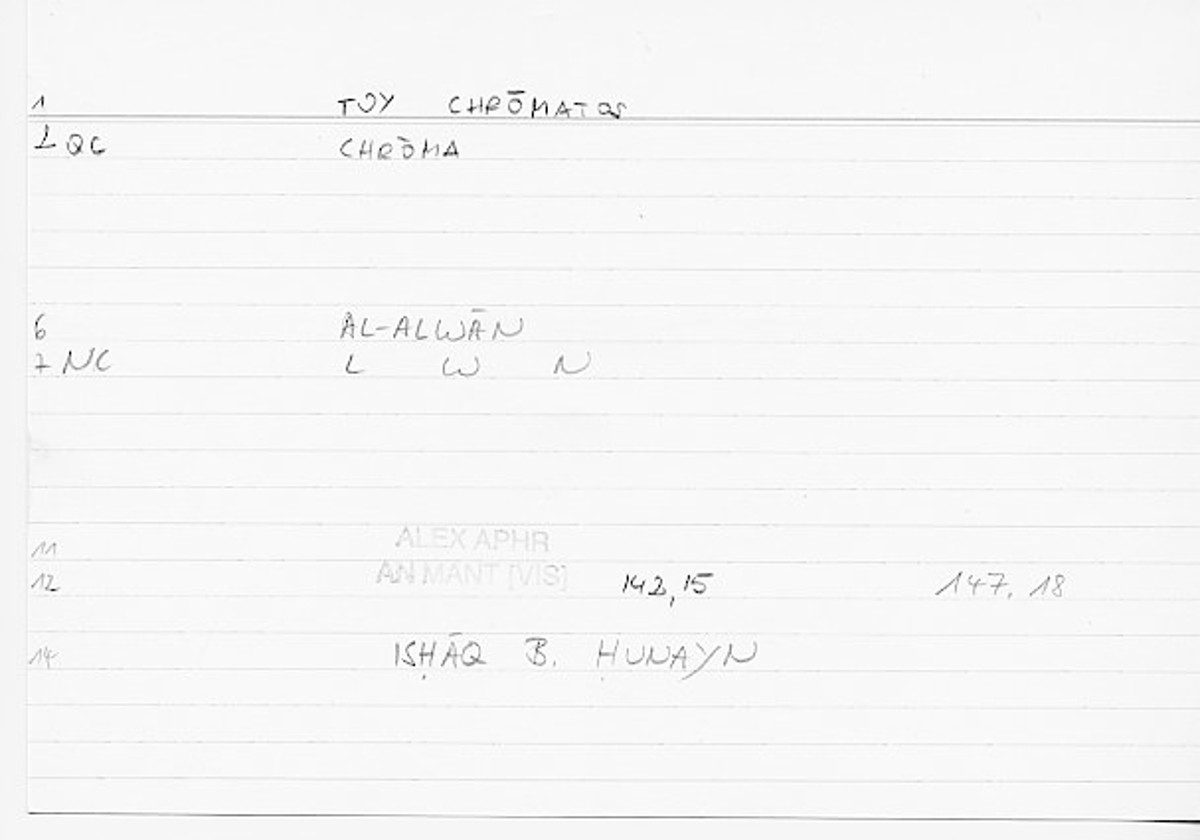 1 TOY CHRŌMATOS
2 QC CHRŌMA
6 AL-ALWĀN
7 NC L W N
11 ALEX APHR
12 AN MANT [VIS] 142,15 147,18
14 ISḤĀQ B. ḤUNAYN